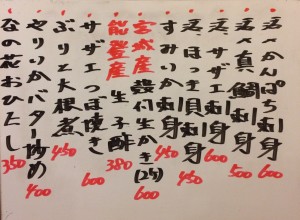 活かんぱち刺身
600
活真鯛刺身
500
活サザエ刺身
600
活ほっき貝刺身
450
すみいか刺身
450
宮城産 殻付生かき(2ケ)
600
能登産 生子酢
380
サザエつぼ焼き
600
ぶりと大根煮
450
やりいかバター炒め
400
なの花おひたし
350